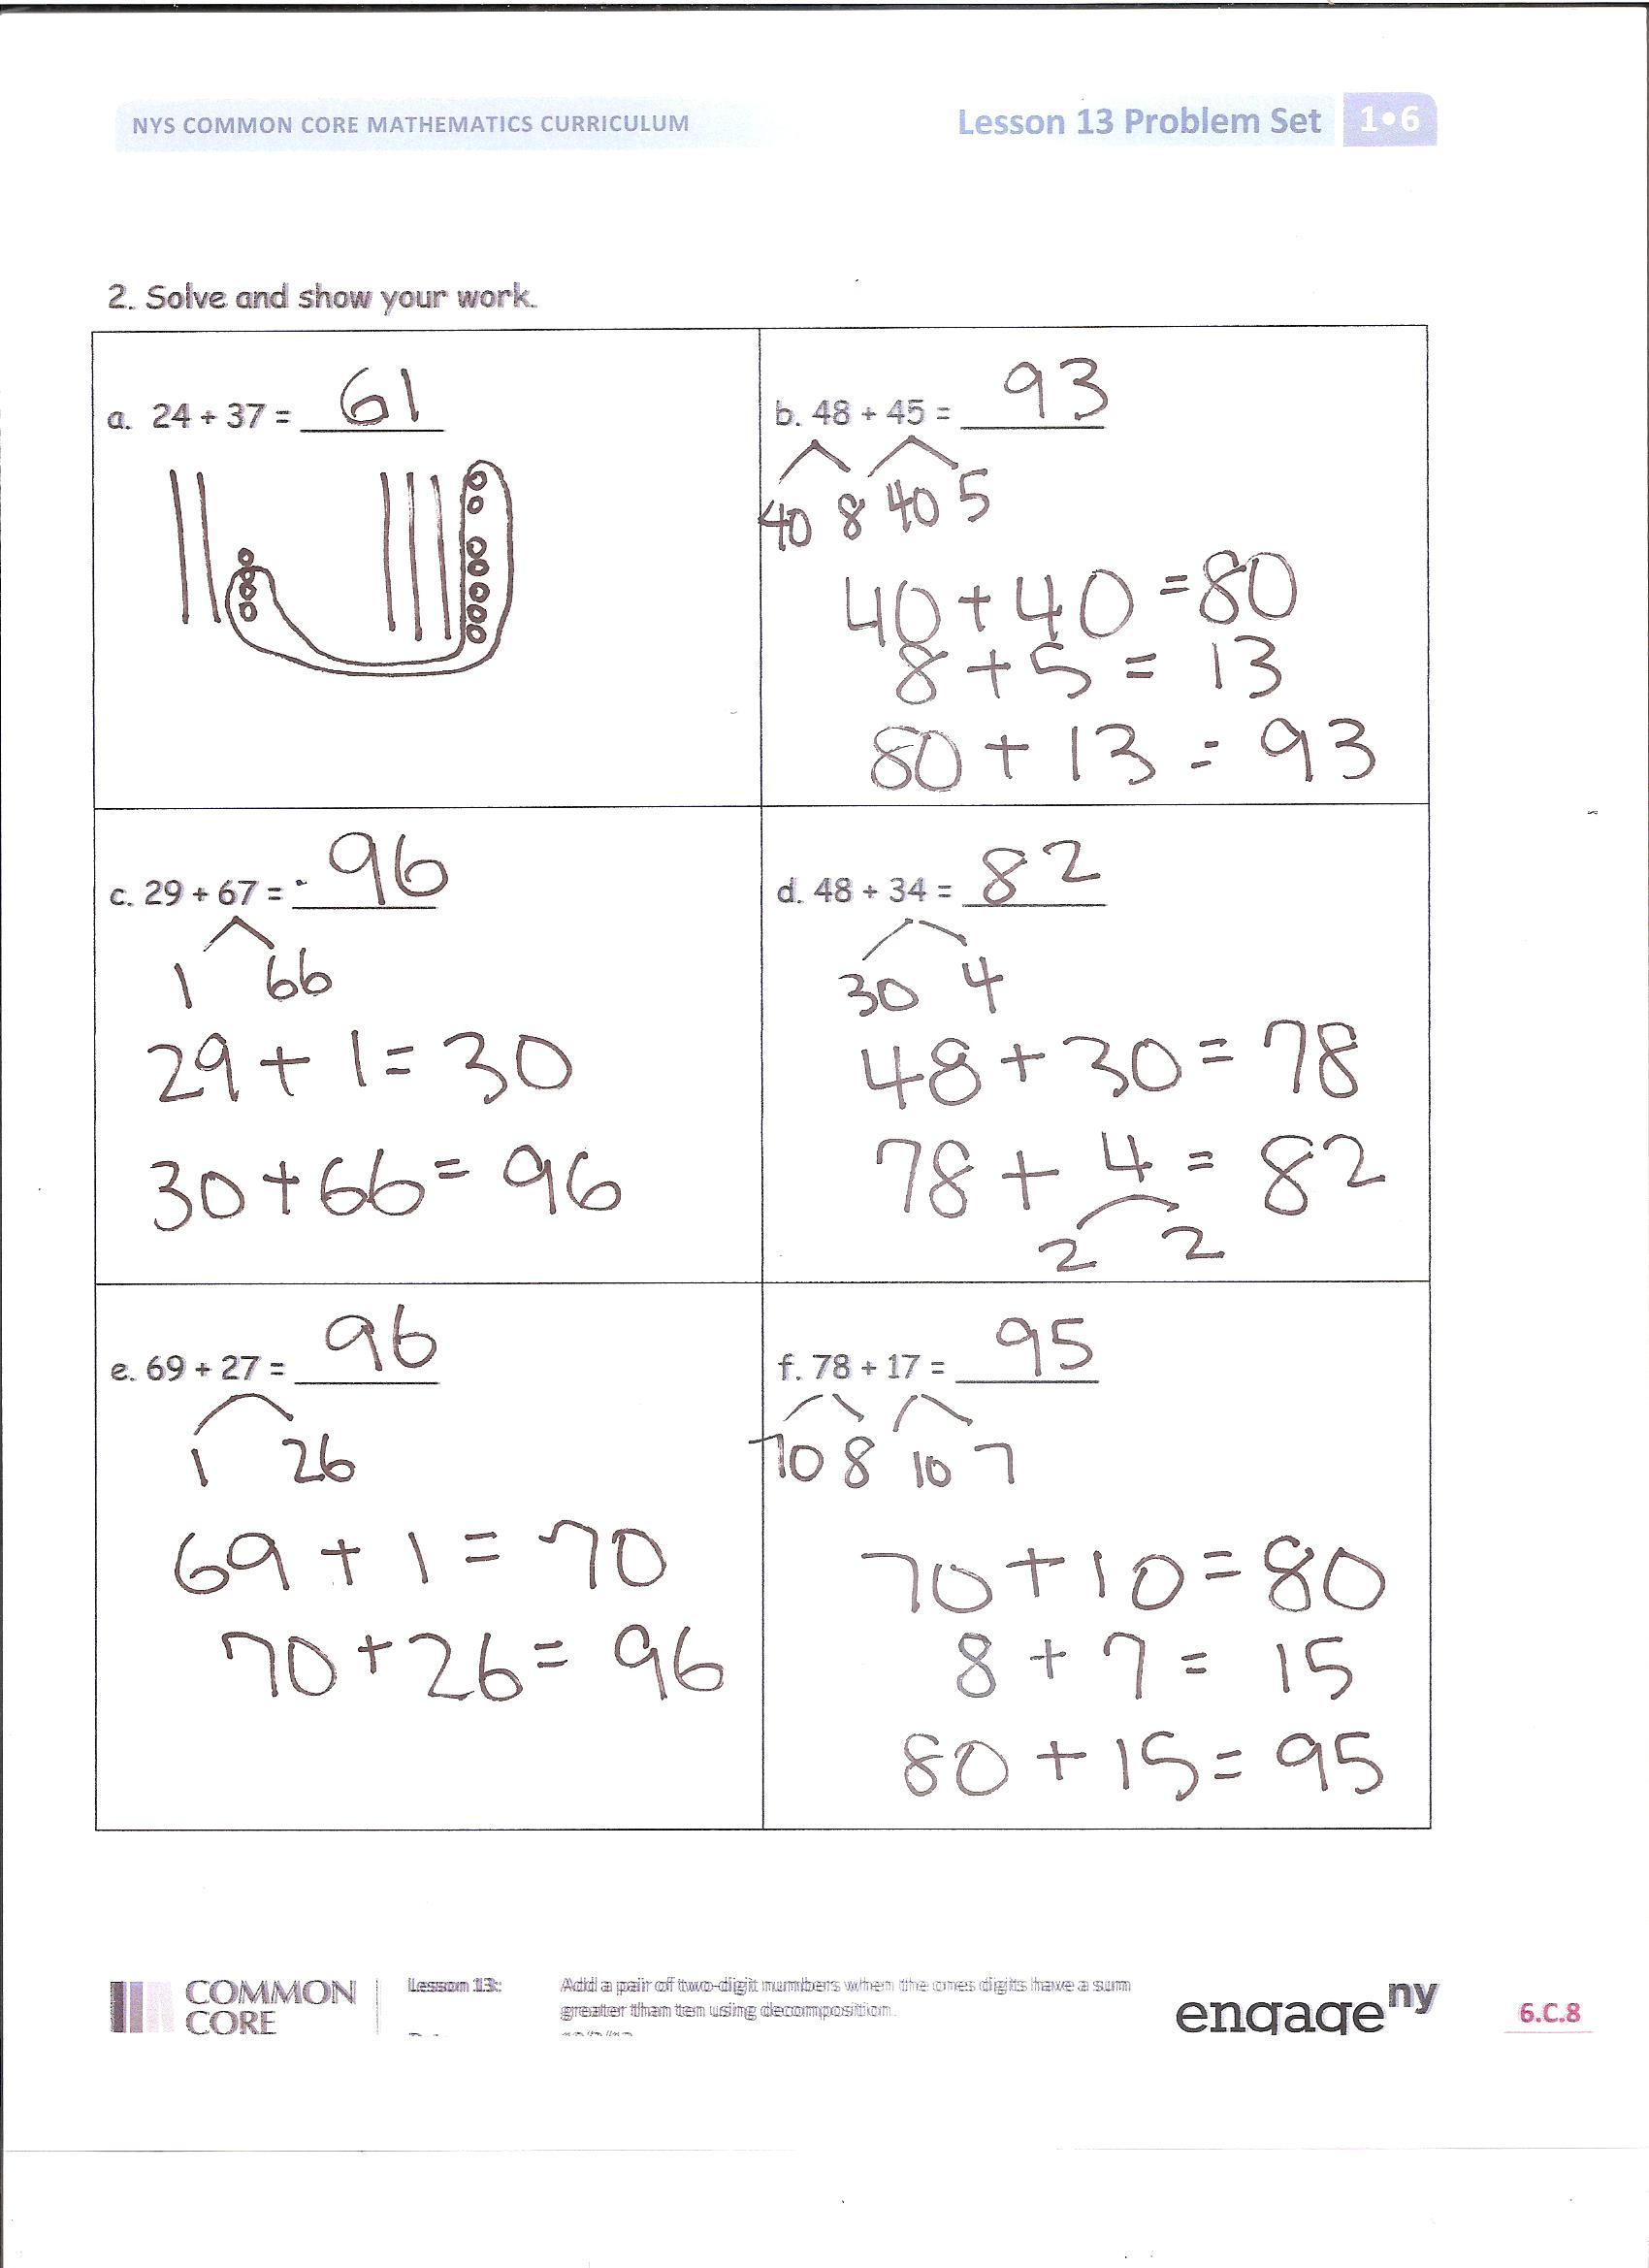 NYS COMMON CORE MATHEMATICS CURRICULUM
Lesson 13 Problem Set 1•6
2. Solve and show your work.
a. 24 + 37 = 61
b. 48 + 45 = 93
40 8 40 5
40 + 40 = 80
8 + 5 = 13
80 + 13 = 93
c. 29 + 67 = 96
1 66
29 + 1 = 30
30 + 66 = 96
d. 48 + 34 = 82
30 4
48 + 30 = 78
78 + 4 = 82
2 2
e. 69 + 27 = 96
1 26
69 + 1 = 70
70 + 26 = 96
f. 78 + 17 = 95
70 8 10 7
70 + 10 = 80
8 + 7 = 15
80 + 15 = 95
COMMON CORE
Lesson 13:
Add a pair of two-digit numbers when the ones digits have a sum
greater than ten using decomposition.
engage ny
6.C.8